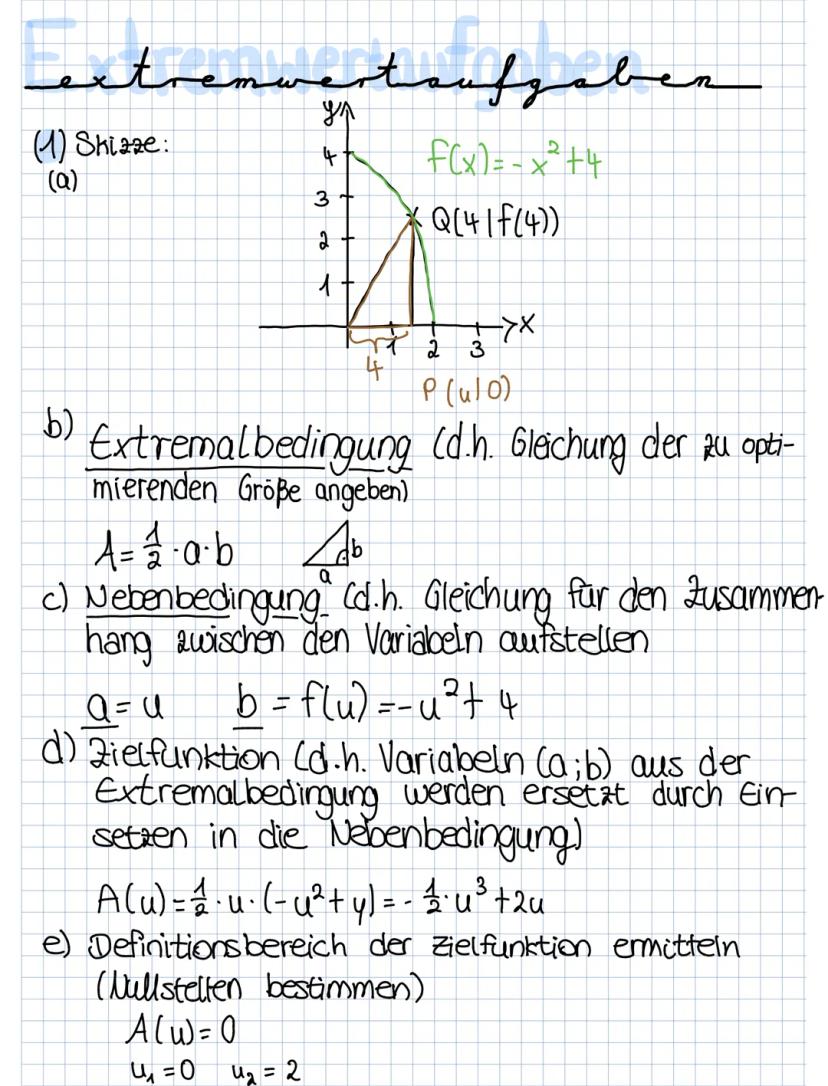 Extremwertaufgaben
extremwertaufgaben
(1) Skizze:
(a)
y
4
3
2
1
f(x)=-x²+4
Q(4|f(4))
1 2 3 x
4
P(u|0)
b) Extremalbedingung (d.h. Gleichung der zu opti-
mierenden Größe angeben)
A=½·a·b
b
a
c) Nebenbedingung (d.h. Gleichung für den Zusammen-
hang zwischen den Variabeln aufstellen
a=u b = f(u) =-u²+ 4
d) Zielfunktion (d.h. Variabeln (a;b) aus der
Extremalbedingung werden ersetzt durch Ein-
setzen in die Nebenbedingung)
A(u)=½·u·(-u²+y)=-½·u³+2u
e) Definitionsbereich der Zielfunktion ermitteln
(Nullstellen bestimmen)
A(u)=0
u₁=0 u₂=2